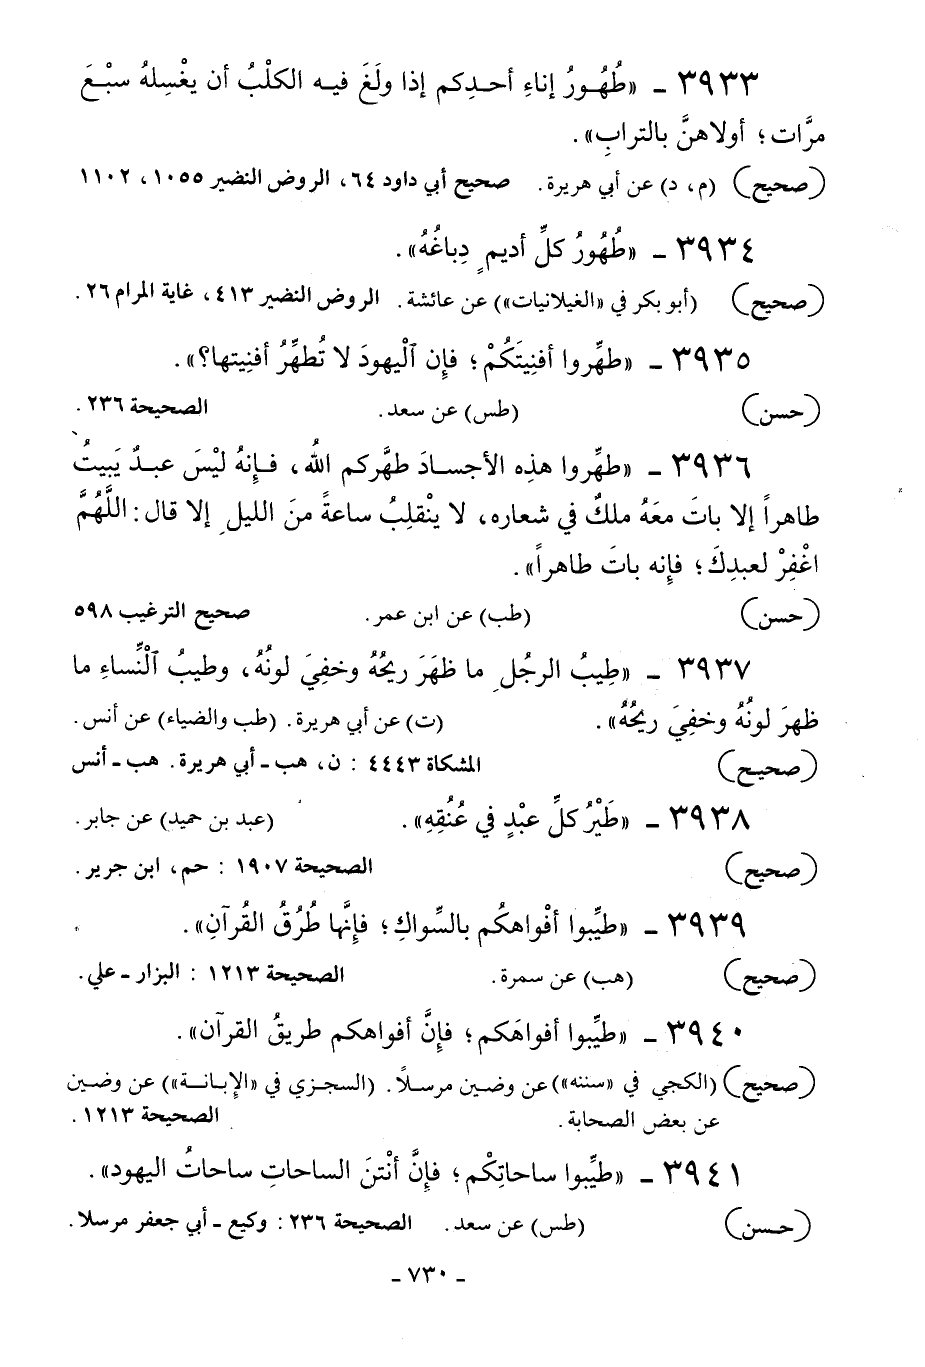 ٣٩٣٣ ـ «طُهُورُ إناءِ أحدِكم إذا ولَغَ فيه الكلْبُ أن يغْسِلهُ سبْعَ
مرَّات؛ أولاهنَّ بالترابِ».
(صحيح) (م، د) عن أبي هريرة. صحيح أبي داود ٦٤، الروض النضير ١٠٥٥، ١١٠٢
٣٩٣٤ ـ «طُهُورُ كلِّ أديمٍ دِباغُهُ».
(صحيح) (أبو بكر في «الغيلانيات») عن عائشة. الروض النضير ٤١٣، غاية المرام ٢٦.
٣٩٣٥ ـ «طهِّروا أفنِيَتَكُمْ؛ فإن ٱلْيهودَ لا تُطهِّرُ أفنِيتها؟».
(حسن) (طس) عن سعد. الصحيحة ٢٣٦.
٣٩٣٦ ـ «طهِّروا هذِه الأجسادَ طهَّركم اللهُ، فإنهُ ليْسَ عبدٌ يَبيتُ
طاهراً إلا باتَ معَهُ ملكٌ في شعاره، لا ينْقلِبُ ساعةً منَ الليلِ إلا قال: اللَّهُمَّ
اغْفِرْ لعبدِكَ؛ فإنه باتَ طاهراً».
(حسن) (طب) عن ابن عمر. صحيح الترغيب ٥٩٨
٣٩٣٧ ـ «طِيبُ الرجُلِ ما ظهَرَ ريحُهُ وخفِيَ لونُهُ، وطيبُ ٱلْنِّساءِ ما
ظهرَ لونُهُ وخفِيَ ريحُهُ». (ت) عن أبي هريرة. (طب والضياء) عن أنس.
(صحيح) المشكاة ٤٤٤٣ : ن، هب ـ أبي هريرة. هب ـ أنس
٣٩٣٨ ـ «طَيْرُ كلِّ عبْدٍ في عُنُقِهِ». (عبد بن حميد) عن جابر.
(صحيح) الصحيحة ١٩٠٧ : حم، ابن جرير.
٣٩٣٩ ـ «طيِّبوا أفْواهكُم بالسِّواكِ؛ فإنَّها طُرُقُ القُرآنِ».
(صحيح) (هب) عن سمرة. الصحيحة ١٢١٣ : البزار ـ علي.
٣٩٤٠ ـ «طيِّبوا أفواهَكم؛ فإنَّ أفواهكم طريقُ القرآن».
(صحيح) (الكجي في «سننه») عن وضين مرسلًا. (السجزي في «الإبانة») عن وضين
عن بعض الصحابة. الصحيحة ١٢١٣.
٣٩٤١ ـ «طيِّبوا ساحاتِكْم؛ فإنَّ أنْتنَ الساحاتِ ساحاتُ اليهود».
(حسن) (طس) عن سعد. الصحيحة ٢٣٦: وكيع ـ أبي جعفر مرسلا.
ـ ٧٣٠ ـ